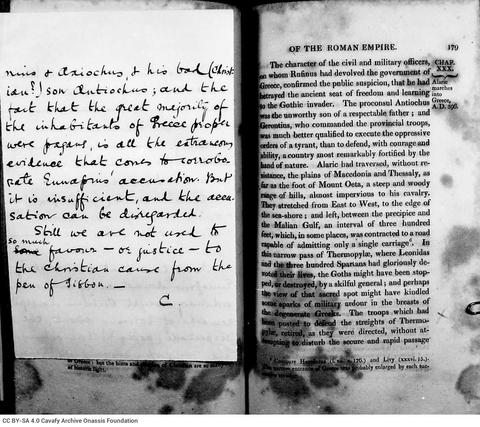 nius & Axiochus, & his bad (Christ-
ian?) son Antiochus; and the
fact that the great majority of
the inhabitants of Greece proper
were pagans, is all the extraneous
evidence that comes to corrobo-
rate Eunapius' accusation. But
it is insufficient, and the accu-
sation can be disregarded.
Still we are not used to
so much
some favour — or justice — to
the Christian cause from the
pen of Gibbon. —
C.
of historic light.
OF THE ROMAN EMPIRE. 179
The character of the civil and military officers,
on whom Rufinus had devolved the government of
Greece, confirmed the public suspicion, that he had
betrayed the ancient seat of freedom and learning
to the Gothic invader. The proconsul Antiochus
was the unworthy son of a respectable father; and
Gerontius, who commanded the provincial troops,
was much better qualified to execute the oppressive
orders of a tyrant, than to defend, with courage and
ability, a country most remarkably fortified by the
hand of nature. Alaric had traversed, without re-
sistance, the plains of Macedonia and Thessaly, as
far as the foot of Mount Oeta, a steep and woody
range of hills, almost impervious to his cavalry.
They stretched from East to West, to the edge of
the sea-shore; and left, between the precipice and
the Malian Gulf, an interval of three hundred
feet, which, in some places, was contracted to a road
capable of admitting only a single carriage. In
this narrow pass of Thermopylæ, where Leonidas
and the three hundred Spartans had gloriously de-
voted their lives, the Goths might have been stop-
ped, or destroyed, by a skilful general; and perhaps
the view of that sacred spot might have kindled
some sparks of military ardour in the breasts of
the degenerate Greeks. The troops which had
been posted to defend the streights of Thermo-
pylæ, retired, as they were directed, without at-
tempting to disturb the secure and rapid passage
CHAP.
XXX.
Alaric
marches
into
Greece,
A.D. 396.
Compare Herodotus and Livy (xxxvi. 15.)
narrow entrance of Greece was probably enlarged by each suc-
CC BY-SA 4.0 Cavafy Archive Onassis Foundation